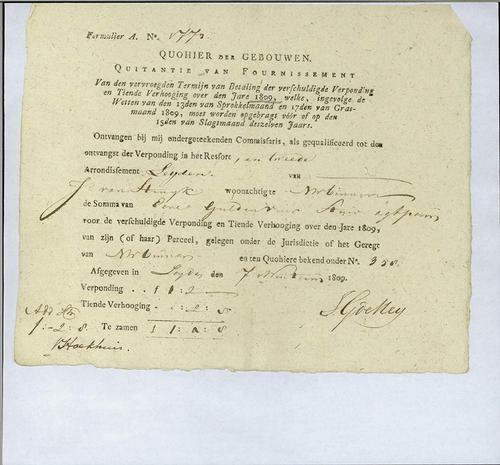 Formulier A. No. 1773.
QUOHIER DER GEBOUWEN.
QUITANTIE VAN FOURNISSEMENT
Van den vervroegden Termijn van Betaling der verschuldigde Verponding
en Tiende Verhooging over den Jare 1809, welke, ingevolge de
Wetten van den 13den van Sprokkelmaand en 17den van Gras-
maand 1809, moet worden opgebragt vóór of op den
15den van Slagtmaand deszelven Jaars.
Ontvangen bij mij ondergeteekenden Commissaris, als gequalificeerd tot den
ontvangst der Verponding in het Ressort, en tweede
Arrondissement Leyden van
J. van woonachtig te
de Somma van Eene Gulden
voor de verschuldigde Verponding en Tiende Verhooging over den Jare 1809,
van zijn (of haar) Perceel, gelegen onder de Jurisdictie of het Geregt
van en ten Quohiere bekend onder No. 358.
Afgegeven in Leyden den 7 1809.
Verponding 1:2
Tiende Verhooging :2:8
Add
1:-2:8. Te zamen 1:4:8